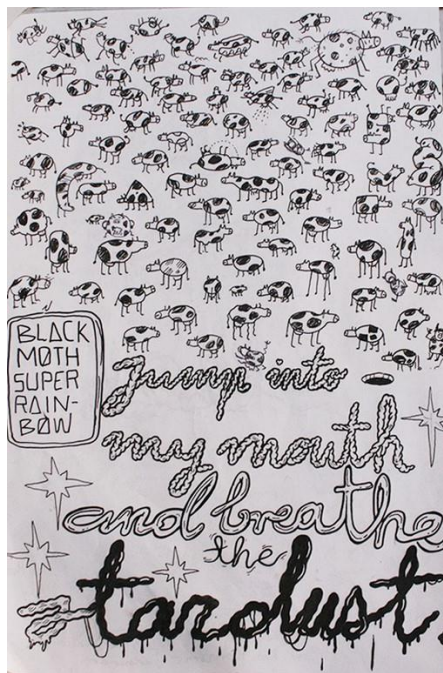 BLACK
MØTH
SUPER
RAIN-
BØW
Jump into
my mouth
and breathe
the
stardust.